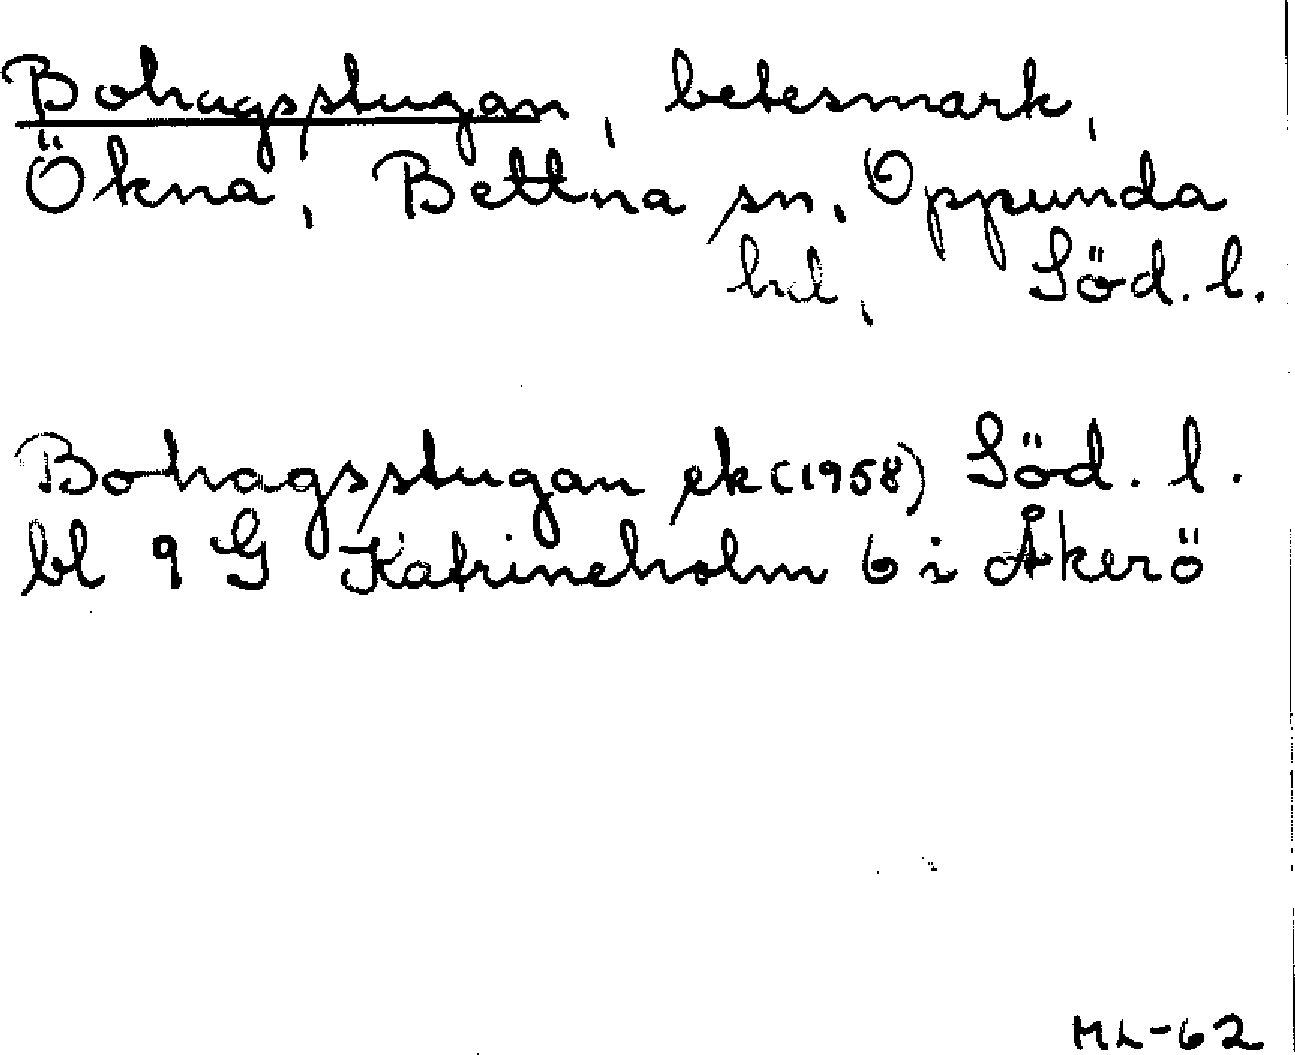 Bohagsstugan, betesmark,
Ökna, Bettna sn, Oppunda
hd, Söd. l.
Bohagsstugan ek (1958) Söd. l.
bl 9 G Katrineholm 6 i Åkerö
ML-62